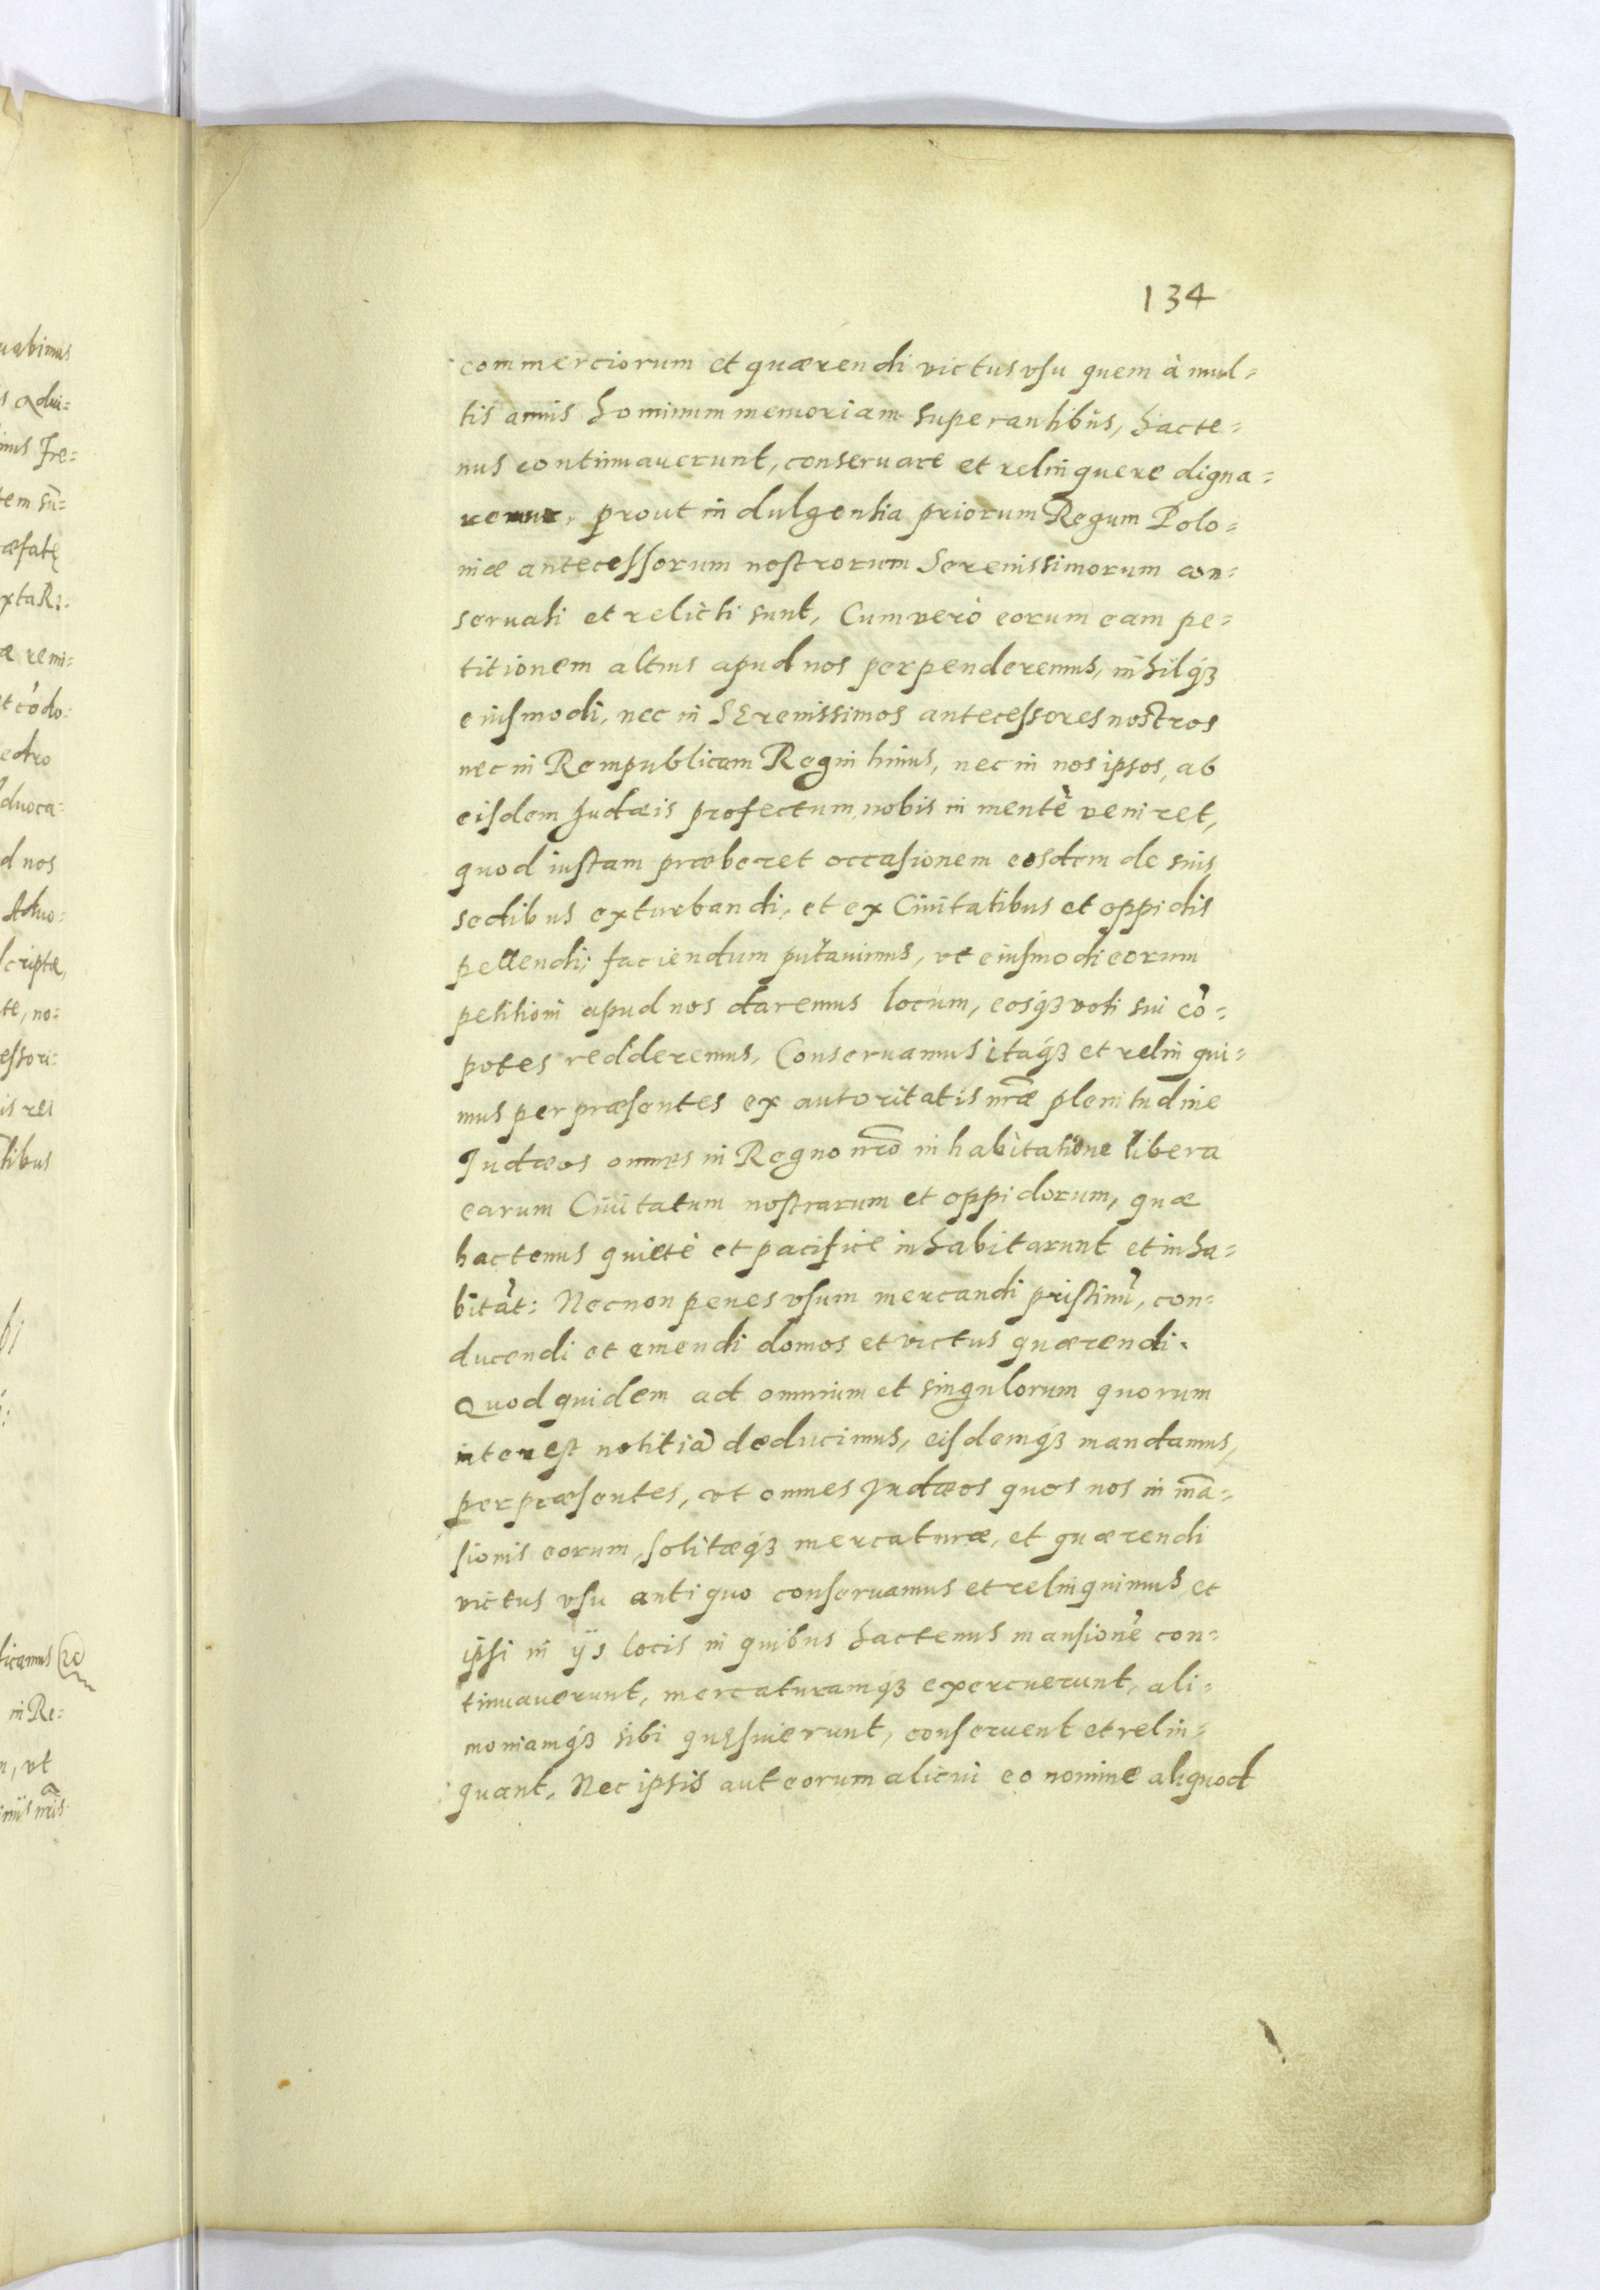 134
commerciorum et quærendi victus vsu quem à mul=
tis annis hominum memoriam superantibus, hacte=
nus continuauerunt, conseruare et relinquere digna=
remur, prout indulgentia priorum Regum Polo=
niæ antecessorum nostrorum Serenissimorum con=
seruati et relicti sunt, Cum verò eorum eam pe=
titionem altius apud nos perpenderemus, nihilq́ꝫ
eiusmodi, nec in SErenissimos antecessores nostros
nec in Rempublicam Regni huius, nec in nos ipsos, ab
eisdem Judæis profectum nobis in mentẽ veniret,
quod iustam præberet occasionem eosdem de suis
sedibus exturbandi, et ex Ciuitatibus et oppidis
pellendi; faciendum putauimus, vt eiusmodi eorum
petitioni apud nos daremus locum, eosq́ꝫ voti sui cõ=
potes redderemus, Conseruamus itaq́ꝫ et relinqui=
mus per præsentes ex autoritatis nr̃æ plenitudine
Judæos omnes in Regno nr̃o in habitatione libera
earum Ciuitatum nostrarum et oppidorum, quæ
hactenus quietè et pacifice inhabitarunt et inha=
bitãt: Necnon penes vsum mercandi pristinũ, con=
ducendi et emendi domos et victus quærendi.
Quod quidem ad omnium et singulorum quorum
interest notitiã deducimus, eisdemq́ꝫ mandamus,
per præsentes, vt omnes Judæos quos nos in mã=
sionis eorum, solitæq́ꝫ mercaturæ, et quærendi
victus vsu antiquo conseruamus et relinquimus, et
ipsi in ijs locis in quibus hactenus mansionẽ con=
tinuauerunt, mercaturamq́ꝫ exercuerunt, ali=
moniamq́ꝫ sibi quęsiuerunt, conseruent et relin=
quant, Nec ipsis aut eorum alicui eo nomine aliquod